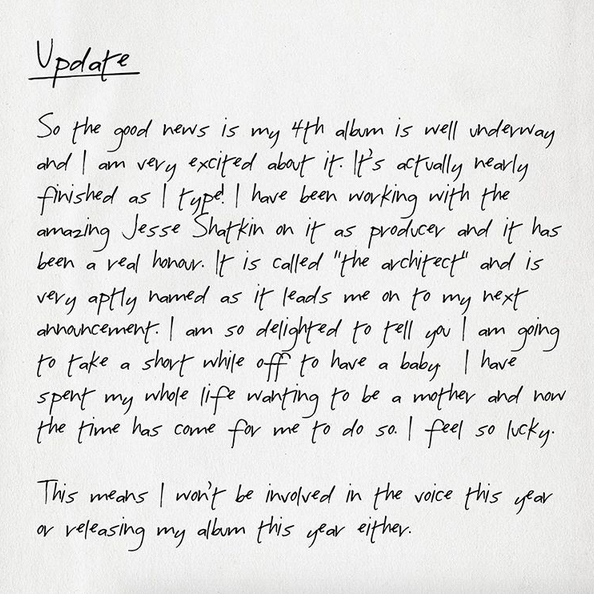 Update
So the good news is my 4th album is well underway
and I am very excited about it. It's actually nearly
finished as I type! I have been working with the
amazing Jesse Shatkin on it as producer and it has
been a real honour. It is called "the architect" and is
very aptly named as it leads me on to my next
announcement. I am so delighted to tell you I am going
to take a short while off to have a baby I have
spent my whole life wanting to be a mother and now
the time has come for me to do so. I feel so lucky.
This means I won't be involved in the voice this year
or releasing my album this year either.